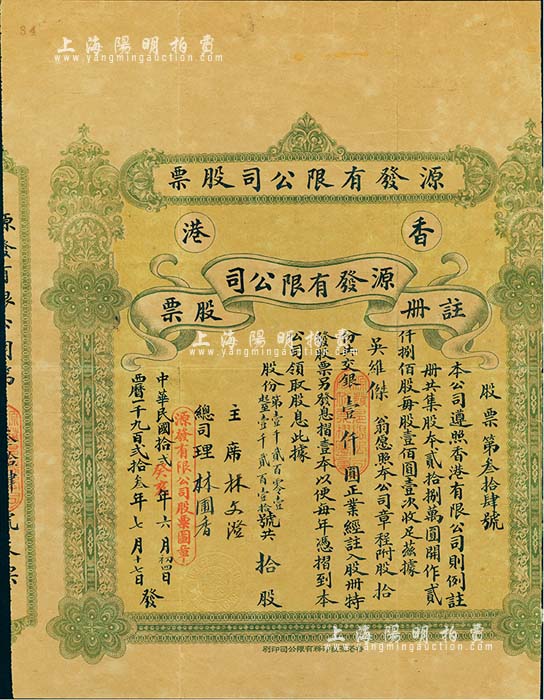 34
上海陽明拍賣
www.yangmingauction.com
源發有限公司股票
香港
源發有限公司
註冊股票
股票第叁拾肆號
本公司遵照香港有限公司則例註
冊共集股本貳拾捌萬圓開作貳
仟捌佰股每股壹佰圓壹次收足茲據
吳維傑翁愿照本公司章程附股拾
份共交銀壹仟圓正業經註入股冊特
發股票另發息摺壹本以便每年憑摺到本
公司領取股息此據
股份第壹千貳百零壹
至壹千貳百壹拾號共拾股
主席林文澄
總司理林圃香
源發有限公司股票圖章
中華民國拾貳癸亥年六月初四日
西曆一千九百貳拾叁年七月十七日發
上海陽明拍賣
www.yangmingauction.com
上海陽明拍賣
www.yangmingauction.com
務有限公司印刷
源發有限公司